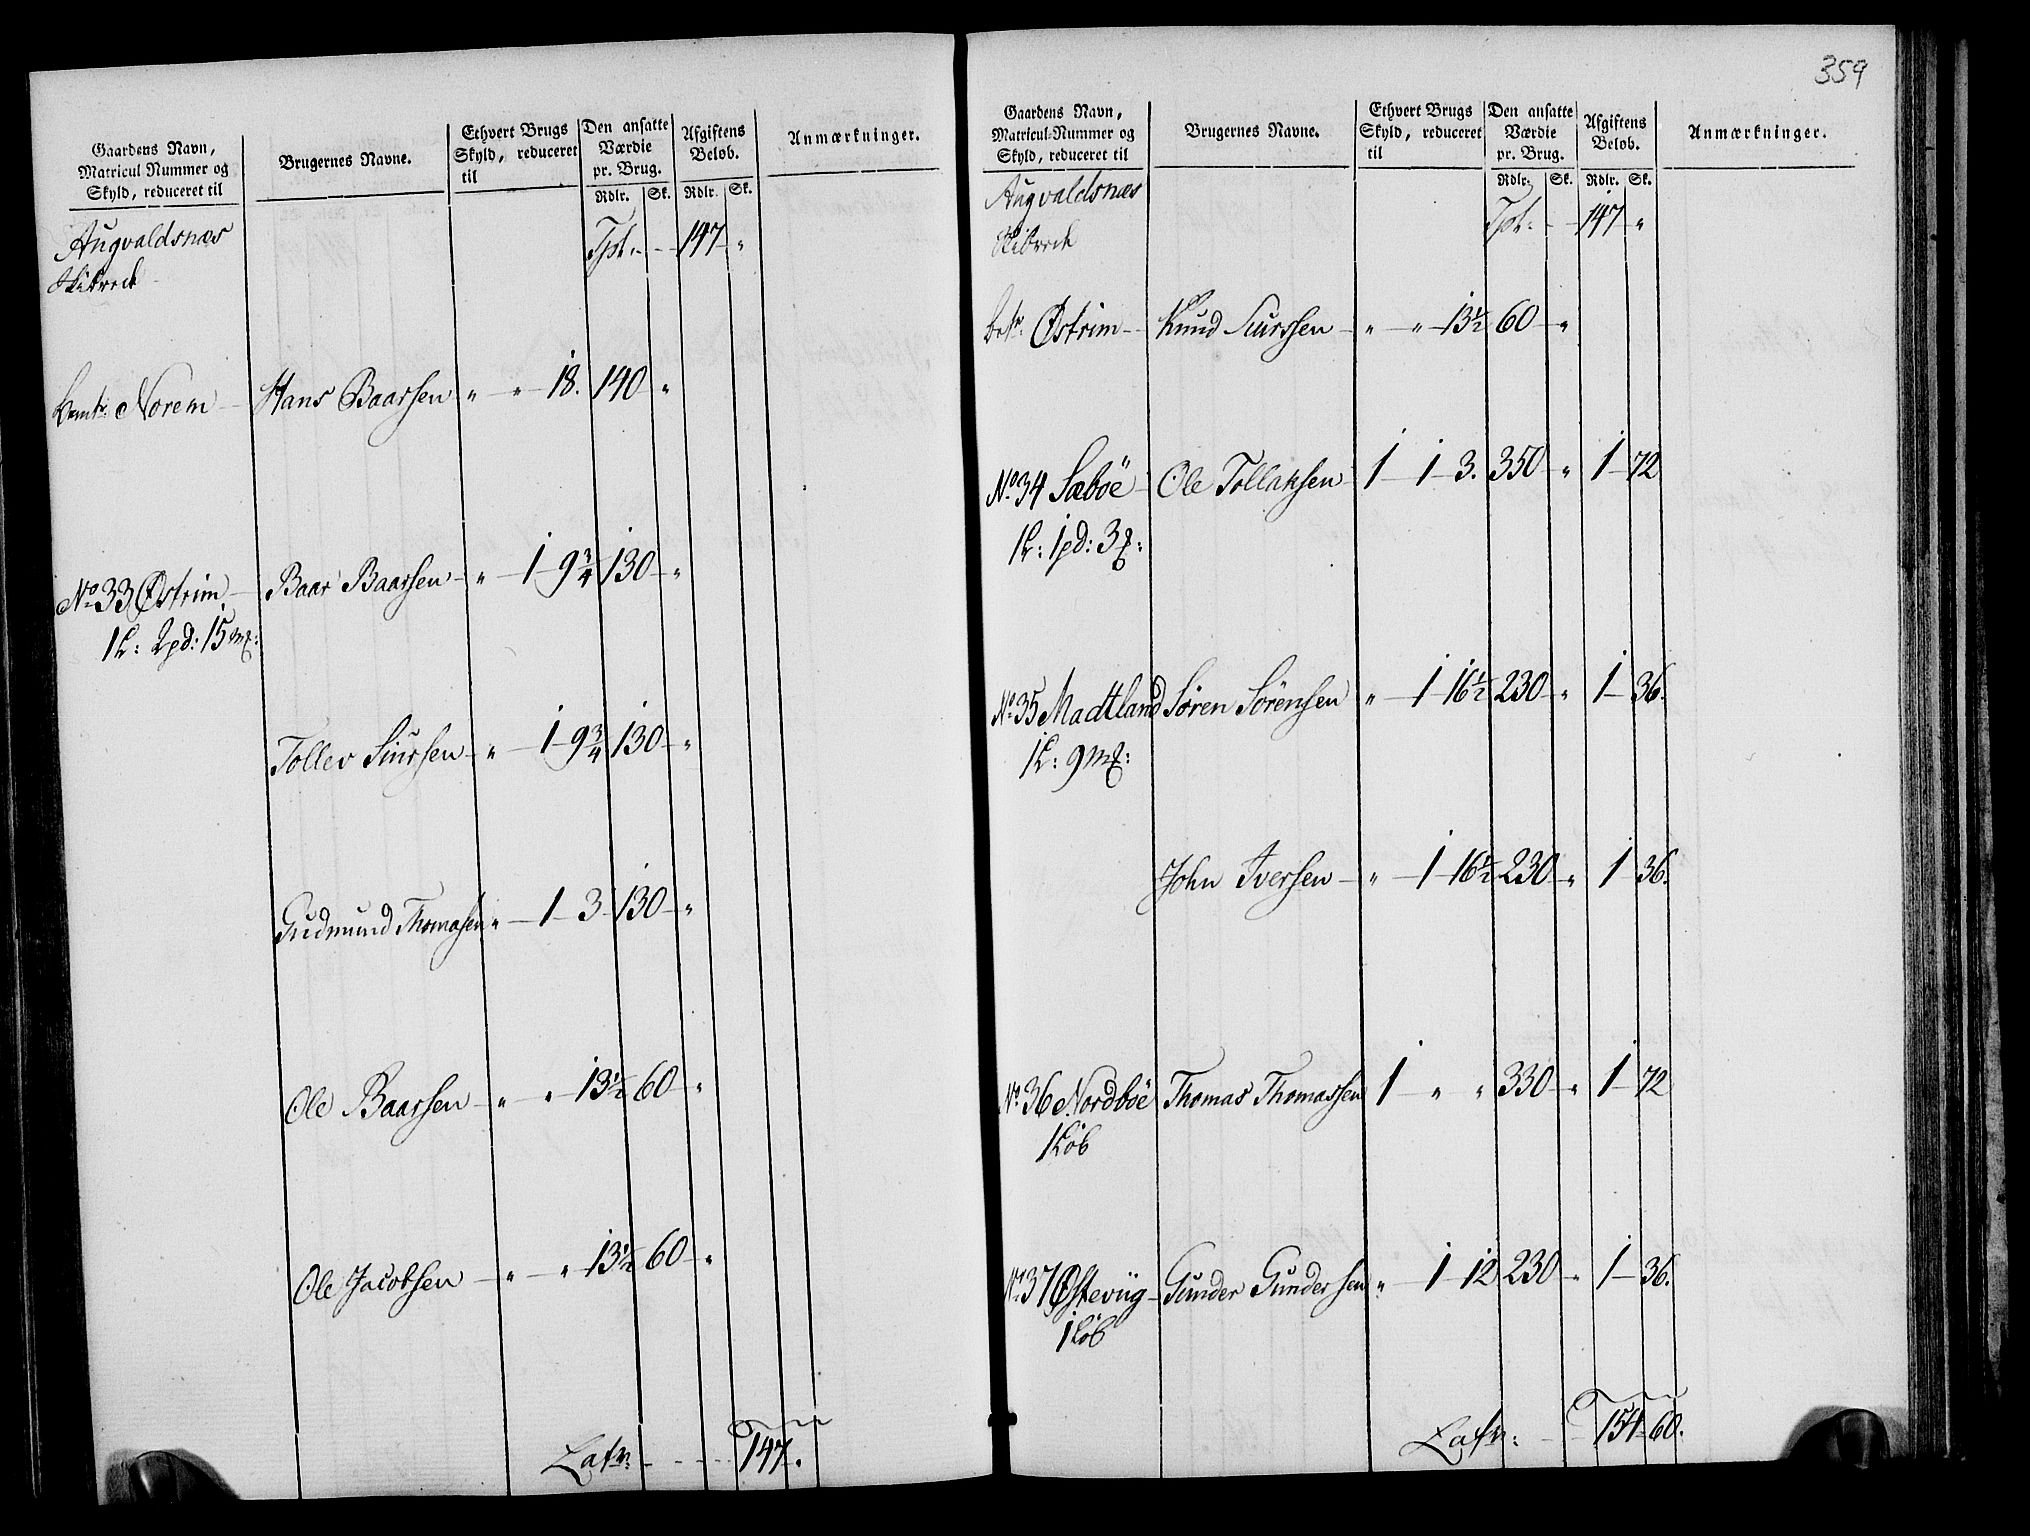 Gaardens Navn,
Matricul Nummer og
Skyld, reduceret til
Brugernes Navne.
Ethvert Brugs
Skyld, reduceret
til
Den ansatte
Værdie
pr. Brug.
Rdlr. Sk.
Afgiftens
Beløb.
Rdlr. Sk.
Anmærkninger.
Augvaldsnæs
Skibrede
Tpt: 147 "
Norem Hans Baarsen " " 18. 140 "
No 33 Østrim Baar Baarsen " 1 9 3/4 130 "
1 L: 2 pd: 15 mk:
Tollev Siursen " 1 9 3/4 130 "
Gudmund Thomasen " 1 3 130 "
Ole Baarsen " " 13 1/2 60 "
Ole Jacobsen " " 13 1/2 60 "
Latr: 147 "
359
Gaardens Navn,
Matricul-Nummer og
Skyld, reduceret til
Brugernes Navne.
Ethvert Brugs
Skyld, reduceret
til
Den ansatte
Værdie
pr. Brug.
Rdlr. Sk.
Afgiftens
Beløb.
Rdlr. Sk.
Anmærkninger.
Augvaldsnæs
Skibrede
Tpt: 147 "
Østrim Knud Siurssen " " 13 1/2 60 "
No 34 Sæbøe Ole Tollaksen 1 1 3. 350 " 1 72
1 L: 1 pd: 3 mk:
No 35 Madtland Søren Sørensen " 1 16 1/2 230 " 1 36.
1 L: 9 mk:
John Iversen " 1 16 1/2 230 " 1 36.
No 36 Nordbøe Thomas Thomassen 1 " " 330 " 1 72
1 Løb
No 37 Østeviig Gunder Gundersen " 1 12 230 " 1 36.
1 Løb
Latr: 154 60.